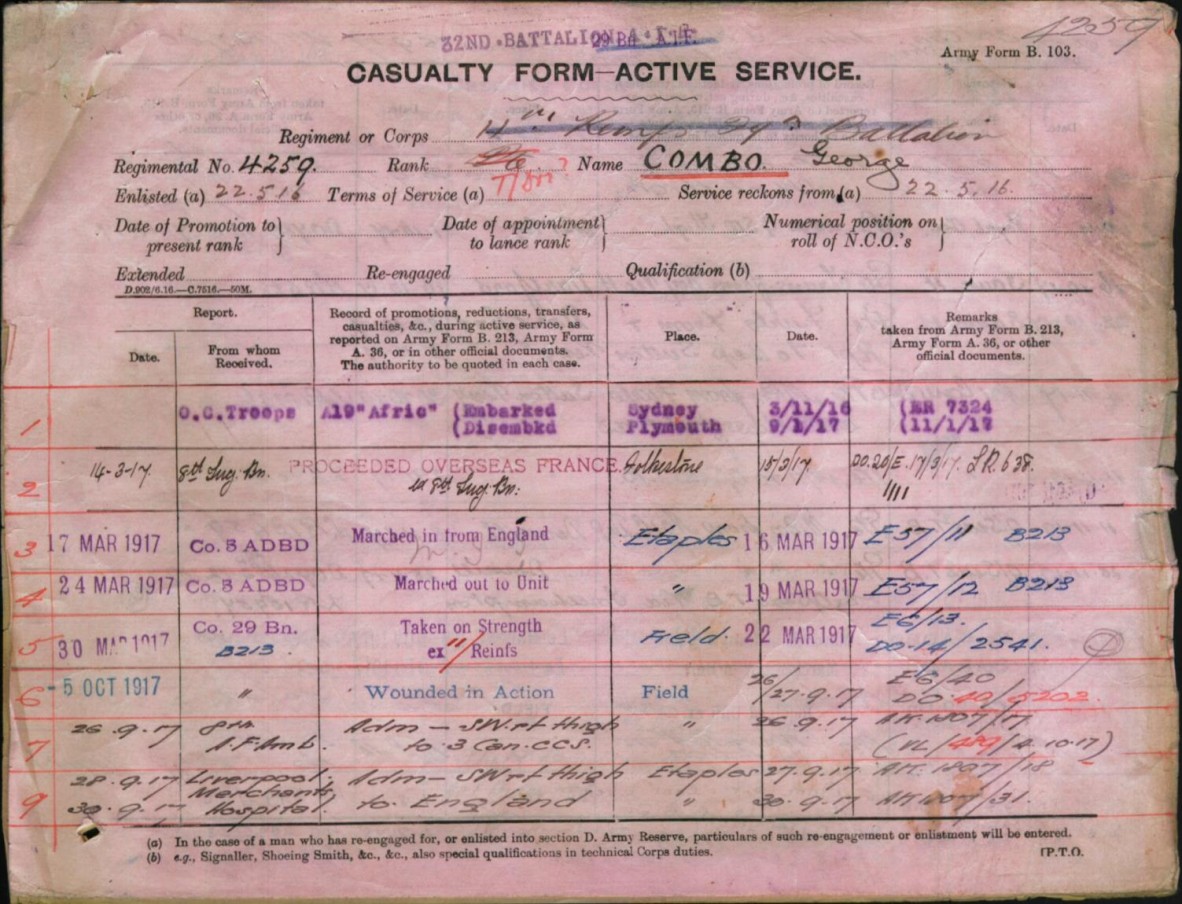 4259
32ND. BATTALION A.I.F.
29 Bn A.I.F.
Army Form B. 103.
CASUALTY FORM—ACTIVE SERVICE.
Regiment or Corps 11th Remfs 29th Battalion
Regimental No. 4259. Rank Pte Name COMBO. George
Enlisted (a) 22.5.16 Terms of Service (a) Service reckons from (a) 22.5.16.
Date of Promotion to present rank } Date of appointment to lance rank } Numerical position on roll of N.C.O.'s }
Extended Re-engaged Qualification (b)
D.902/6.16.—C.7516.—50M.
Report. Record of promotions, reductions, transfers, casualties, &c., during active service, as reported on Army Form B. 213, Army Form A. 36, or in other official documents. The authority to be quoted in each case. Place. Date. Remarks taken from Army Form B. 213, Army Form A. 36, or other official documents.
Date. From whom Received.
1 O.C.Troops A19 "Afric" (Embarked Sydney 3/11/16 (ER 7324
(Disembkd Plymouth 9/1/17 (11/1/17
2 14-3-17. 8th Trg. Bn. PROCEEDED OVERSEAS FRANCE. Folkestone 15/3/17. DO.20/E.17/3/17. L.R. 638.
ex 8th Trg. Bn: 1111
3 17 MAR 1917 Co. 3 ADBD Marched in from England Etaples 16 MAR 1917 E57/11 B213
4 24 MAR 1917 Co. 3 ADBD Marched out to Unit " 19 MAR 1917 E57/12 B213
5 30 MAR 1917 Co. 29 Bn. B213 Taken on Strength ex 11/Reinfs Field. 22 MAR 1917 E6/13. DO.14/2541.
6 -5 OCT 1917 " Wounded in Action Field 26/27.9.17 E6/40 DO 40/5202.
7 26.9.17 8th A.F.Amb. Adm — SW rt thigh to 3 Can. CCS. " 26.9.17 A36.1807/17. (VL/489/4.10.17)
28.9.17 Liverpool Merchants Hospital Adm — SW rt thigh Etaples 27.9.17 A36.1807/18
9 30.9.17 to England " 30.9.17 A36.1807/31.
(a) In the case of a man who has re-engaged for, or enlisted into section D. Army Reserve, particulars of such re-engagement or enlistment will be entered.
(b) e.g., Signaller, Shoeing Smith, &c., &c., also special qualifications in technical Corps duties. [P.T.O.